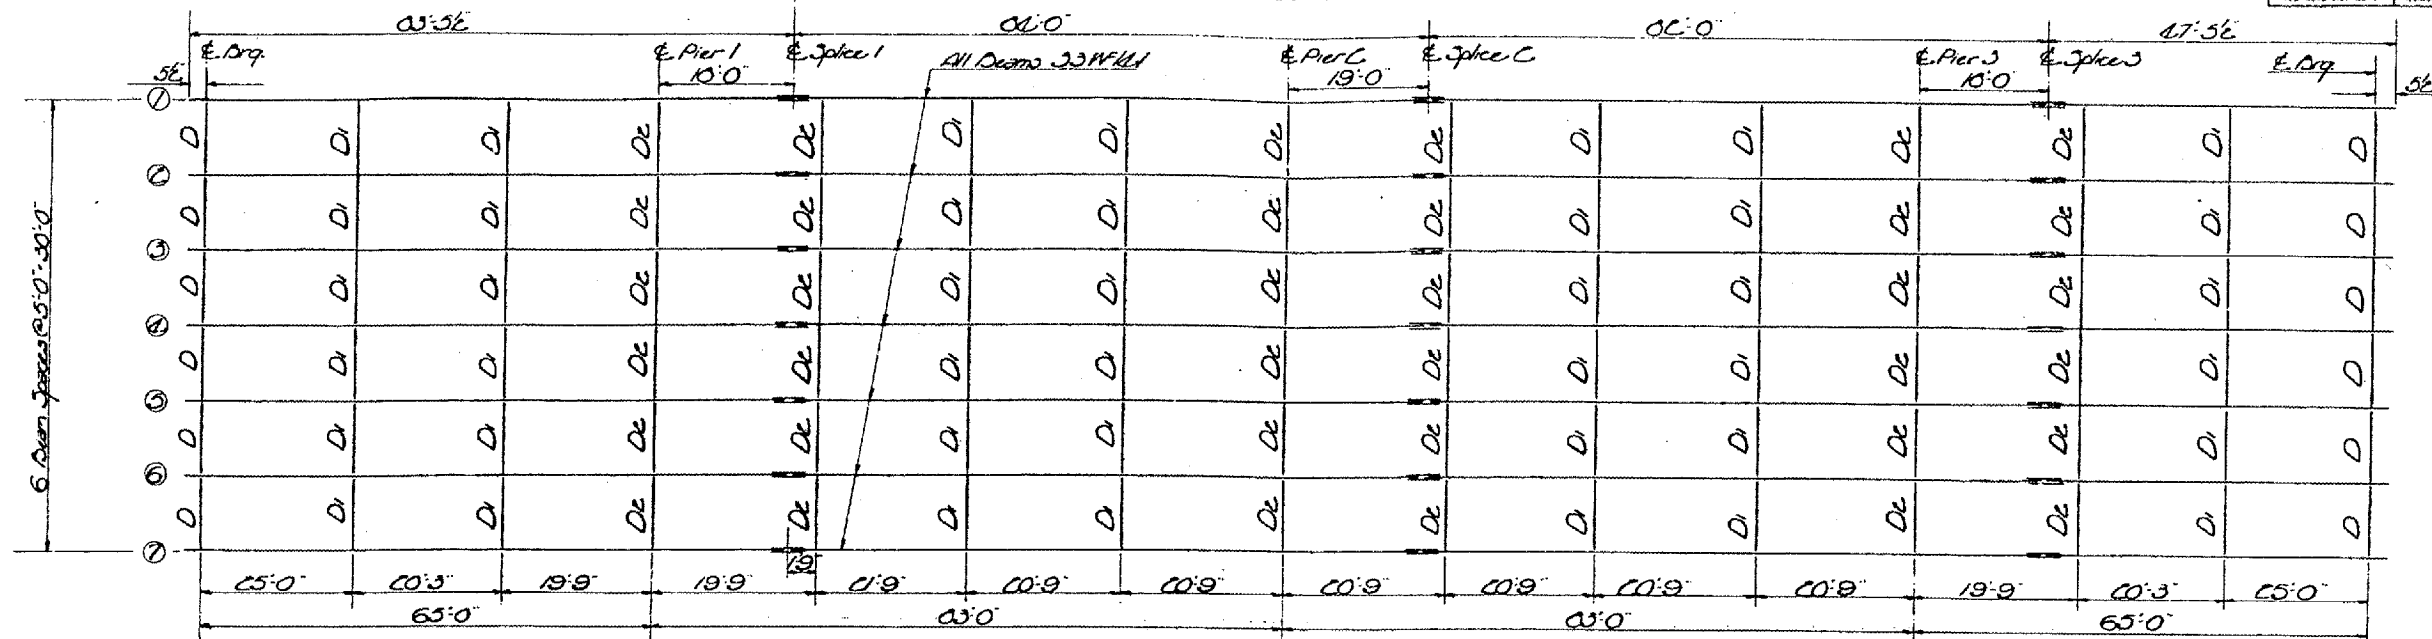 83'-5½" 82'-0" 82'-0" 47'-5½"
℄ Brg. ℄ Pier 1 ℄ Splice 1 All Beams 33 WF ℄ Pier 2 ℄ Splice 2 ℄ Pier 3 ℄ Splice 3 ℄ Brg.
5½" 18'-0" 19'-0" 18'-0" 5½"
1
D D1 D1 D2 D2 D1 D1 D2 D2 D1 D1 D2 D2 D1 D
2
D D1 D1 D2 D2 D1 D1 D2 D2 D1 D1 D2 D2 D1 D
3
D D1 D1 D2 D2 D1 D1 D2 D2 D1 D1 D2 D2 D1 D
4
D D1 D1 D2 D2 D1 D1 D2 D2 D1 D1 D2 D2 D1 D
5
D D1 D1 D2 D2 D1 D1 D2 D2 D1 D1 D2 D2 D1 D
6
D D1 D1 D2 D2 D1 D1 D2 D2 D1 D1 D2 D2 D1 D
7
6 Beam Spaces @ 5'-0" = 30'-0"
1'-9"
25'-0" 20'-3" 19'-9" 19'-9" 21'-9" 20'-9" 20'-9" 20'-9" 20'-9" 20'-9" 20'-9" 19'-9" 20'-3" 25'-0"
65'-0" 83'-0" 83'-0" 65'-0"